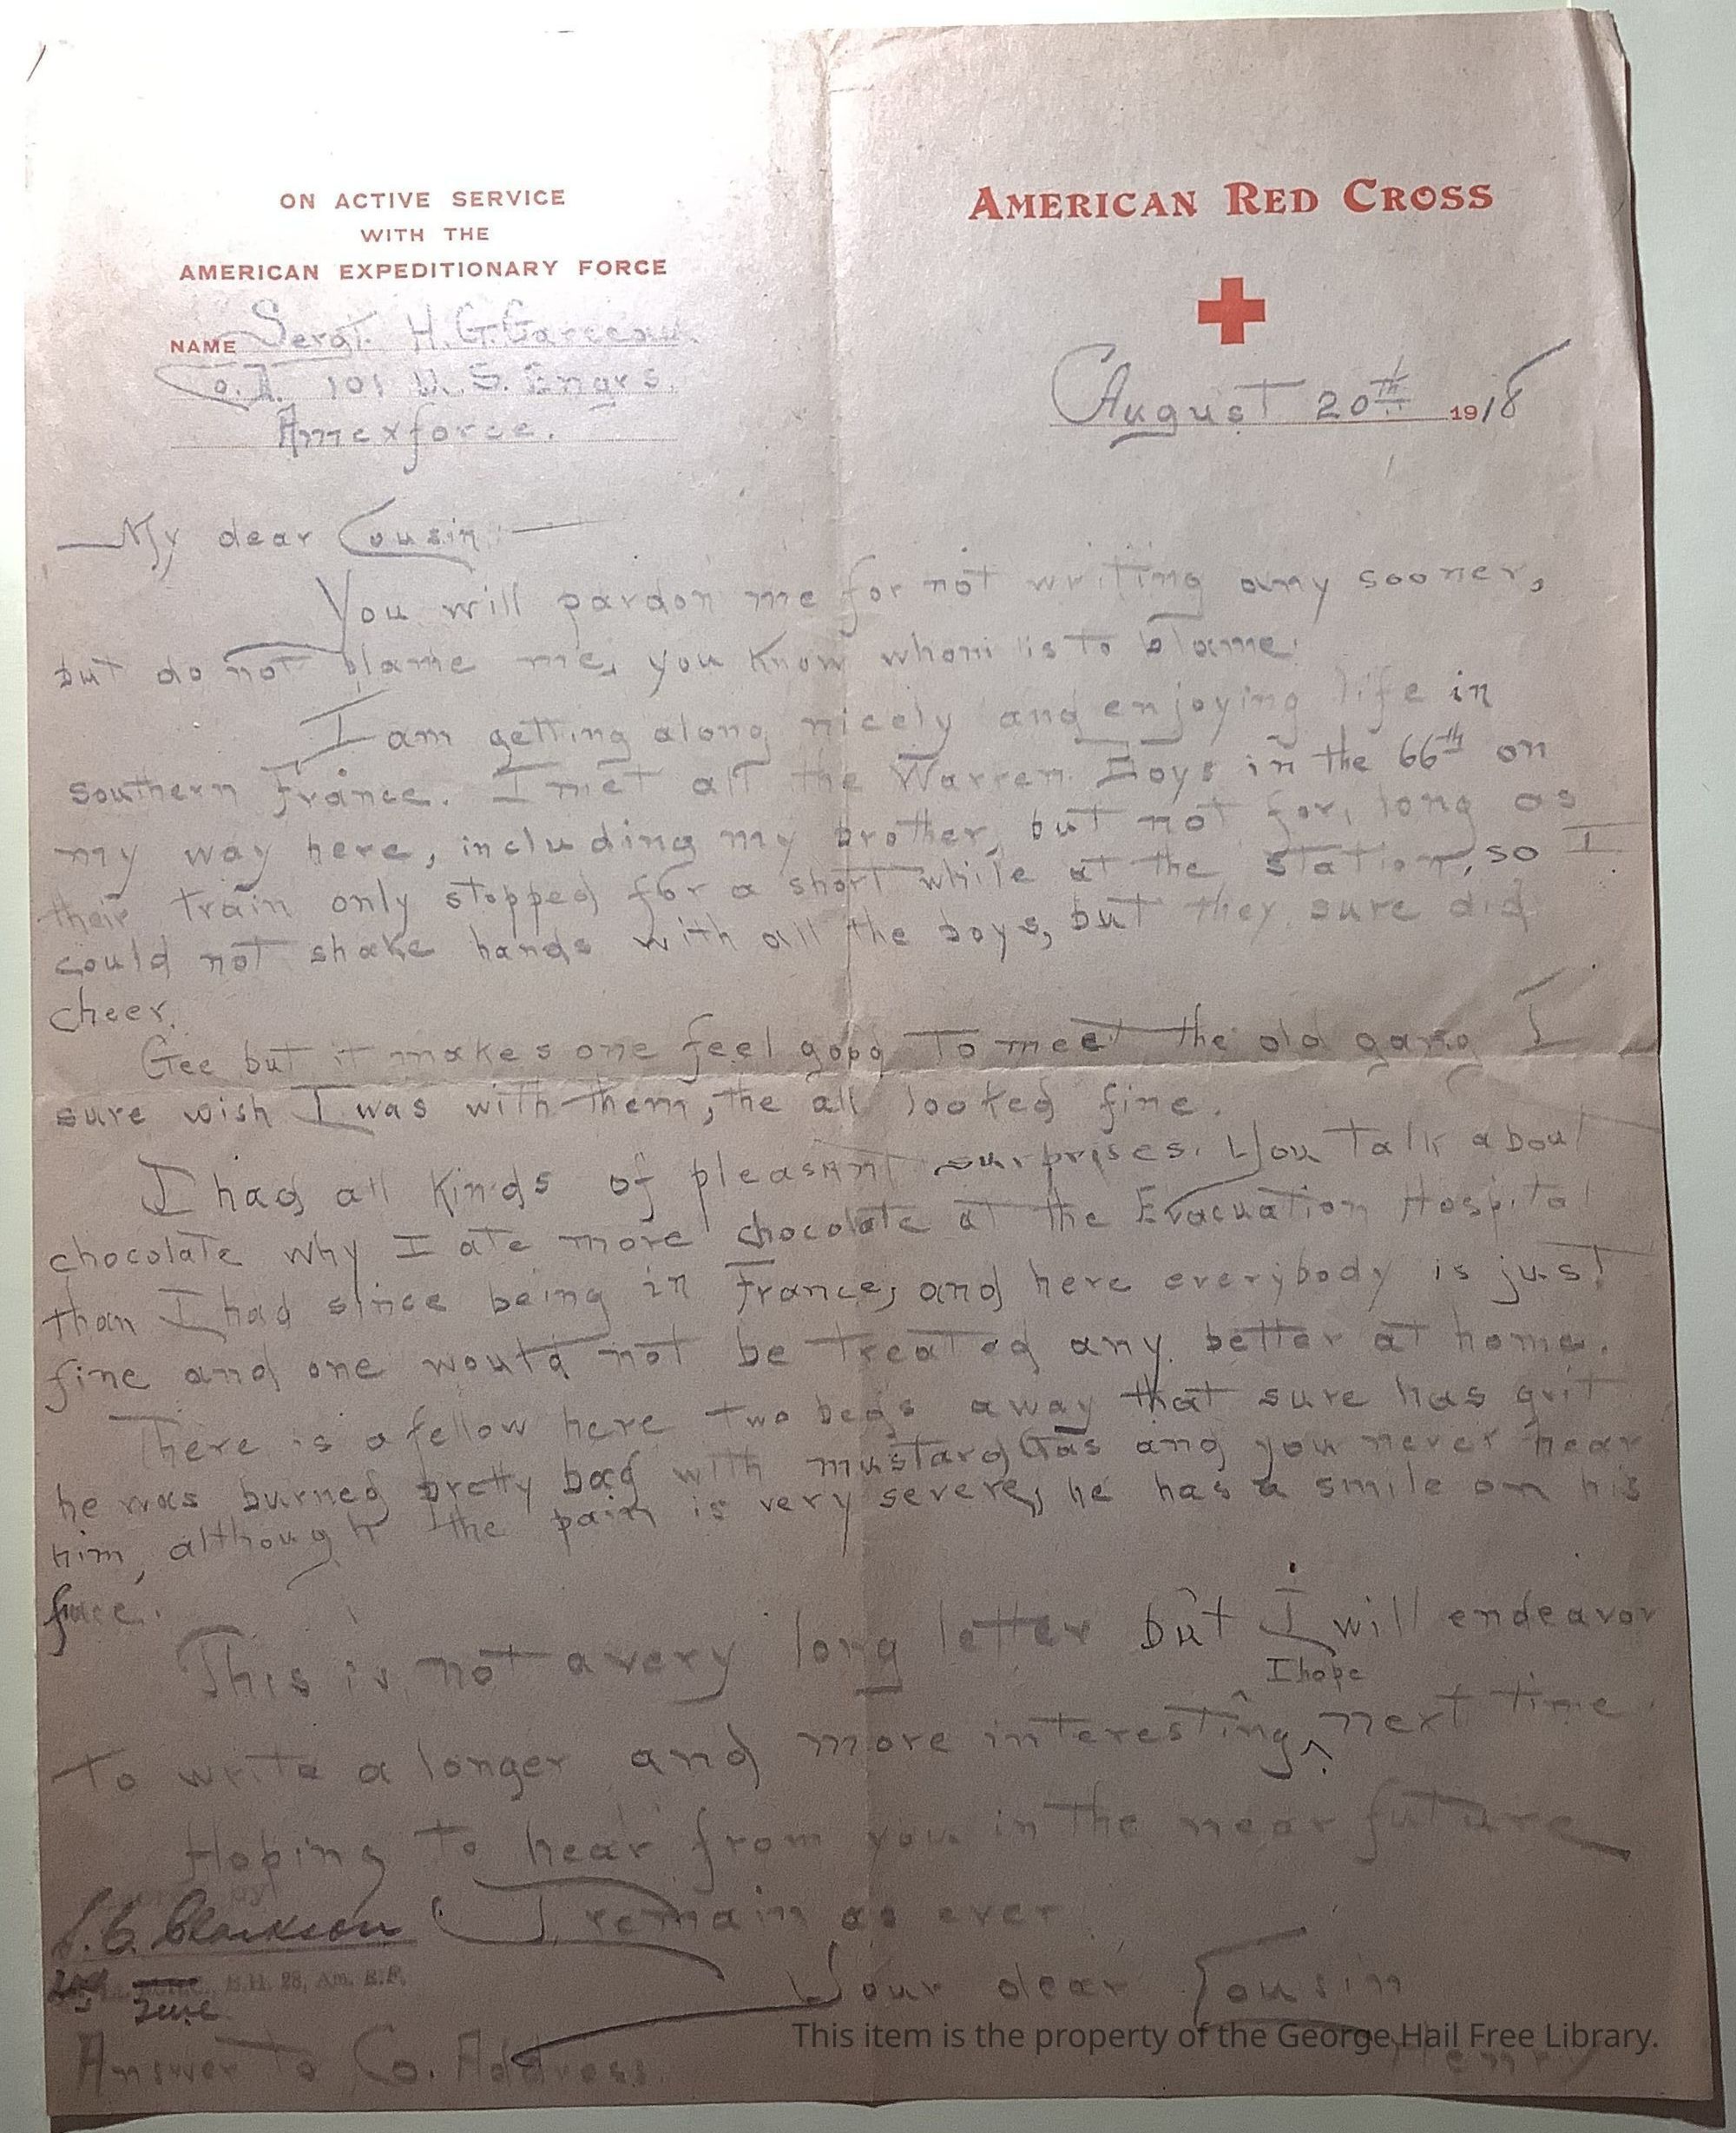 ON ACTIVE SERVICE
WITH THE
AMERICAN EXPEDITIONARY FORCE
NAME Sergt. H.G. Garceau.
Co. A. 101 U.S. Engrs.
Amexforce.
AMERICAN RED CROSS
August 20th 1918
My dear Cousin:—
You will pardon me for not writing any sooner,
but do not blame me, you know whom is to blame.
I am getting along nicely and enjoying life in
southern France. I met all the Warren Boys in the 66th on
my way here, including my brother, but not for long as
their train only stopped for a short while at the station, so I
could not shake hands with all the boys, but they sure did
cheer.
Gee but it makes one feel good to meet the old gang I
sure wish I was with them, the all looked fine.
I had all kinds of pleasant surprises. You talk about
chocolate why I ate more chocolate at the Evacuation Hospital
than I had since being in France, and here everybody is just
fine and one would not be treated any better at home.
There is a fellow here two beds away that sure has grit
he was burned pretty bad with mustard Gas and you never hear
him, although the pain is very severe, he has a smile on his
face.
This is not a very long letter but I will endeavor
I hope
to write a longer and more interesting ^ next time
Hoping to hear from you in the near future
I remain as ever
Your dear Cousin
Henry
by
Clarkson
B.H. 28, Am. E.F.
Answer to Co. Address
This item is the property of the George Hail Free Library.